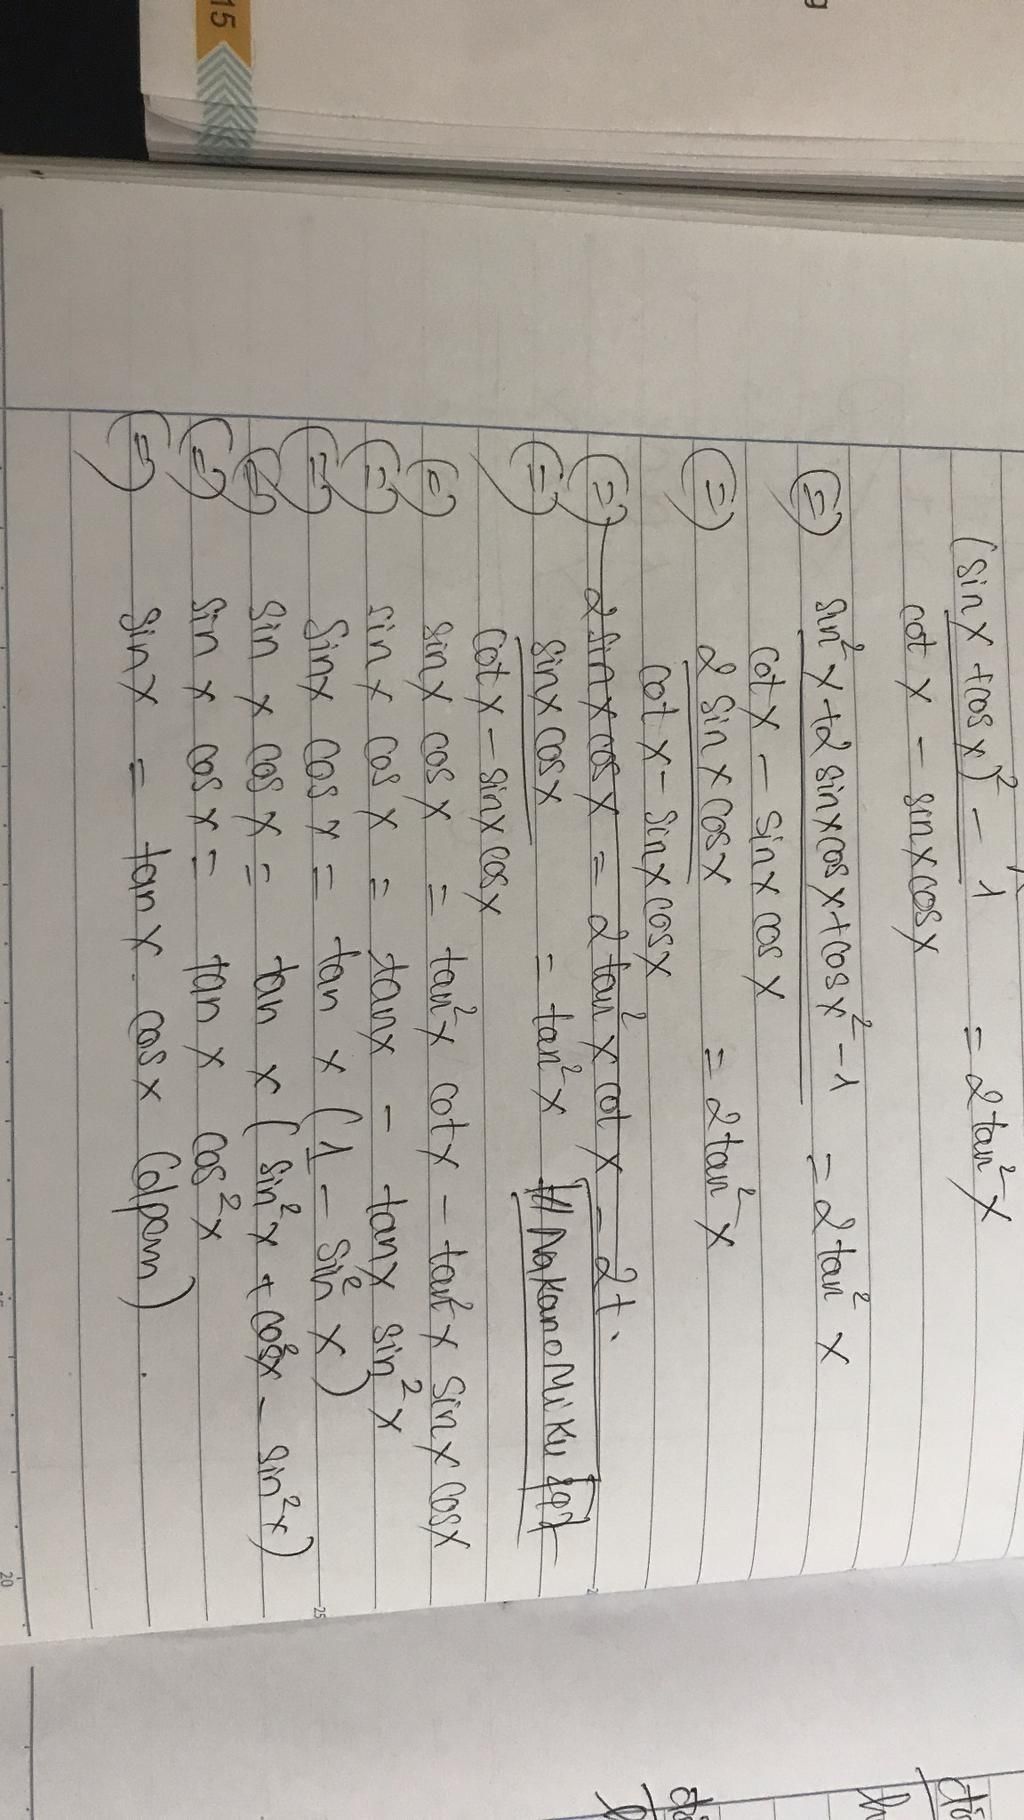 (sin x + cos x)² - 1
cot x - sin x cos x
= 2 tan² x
⇔ sin² x + 2 sin x cos x + cos x² - 1
cot x - sin x cos x
= 2 tan² x
⇔ 2 sin x cos x
cot x - sin x cos x
= 2 tan² x
⇔ 2 sin x cos x = 2 tan² x cot x - 2t
⇔ sin x cos x
cot x - sin x cos x
= tan² x
NakanoMiku
⇔ sin x cos x = tan² x cot x - tan² x sin x cos x
⇔ sin x cos x = tan x - tan x sin² x
⇔ sin x cos x = tan x (1 - sin² x)
⇔ sin x cos x = tan x (sin² x + cos² x - sin² x)
⇔ sin x cos x = tan x cos² x
⇔ sin x = tan x . cos x (đpcm).
15
20
25